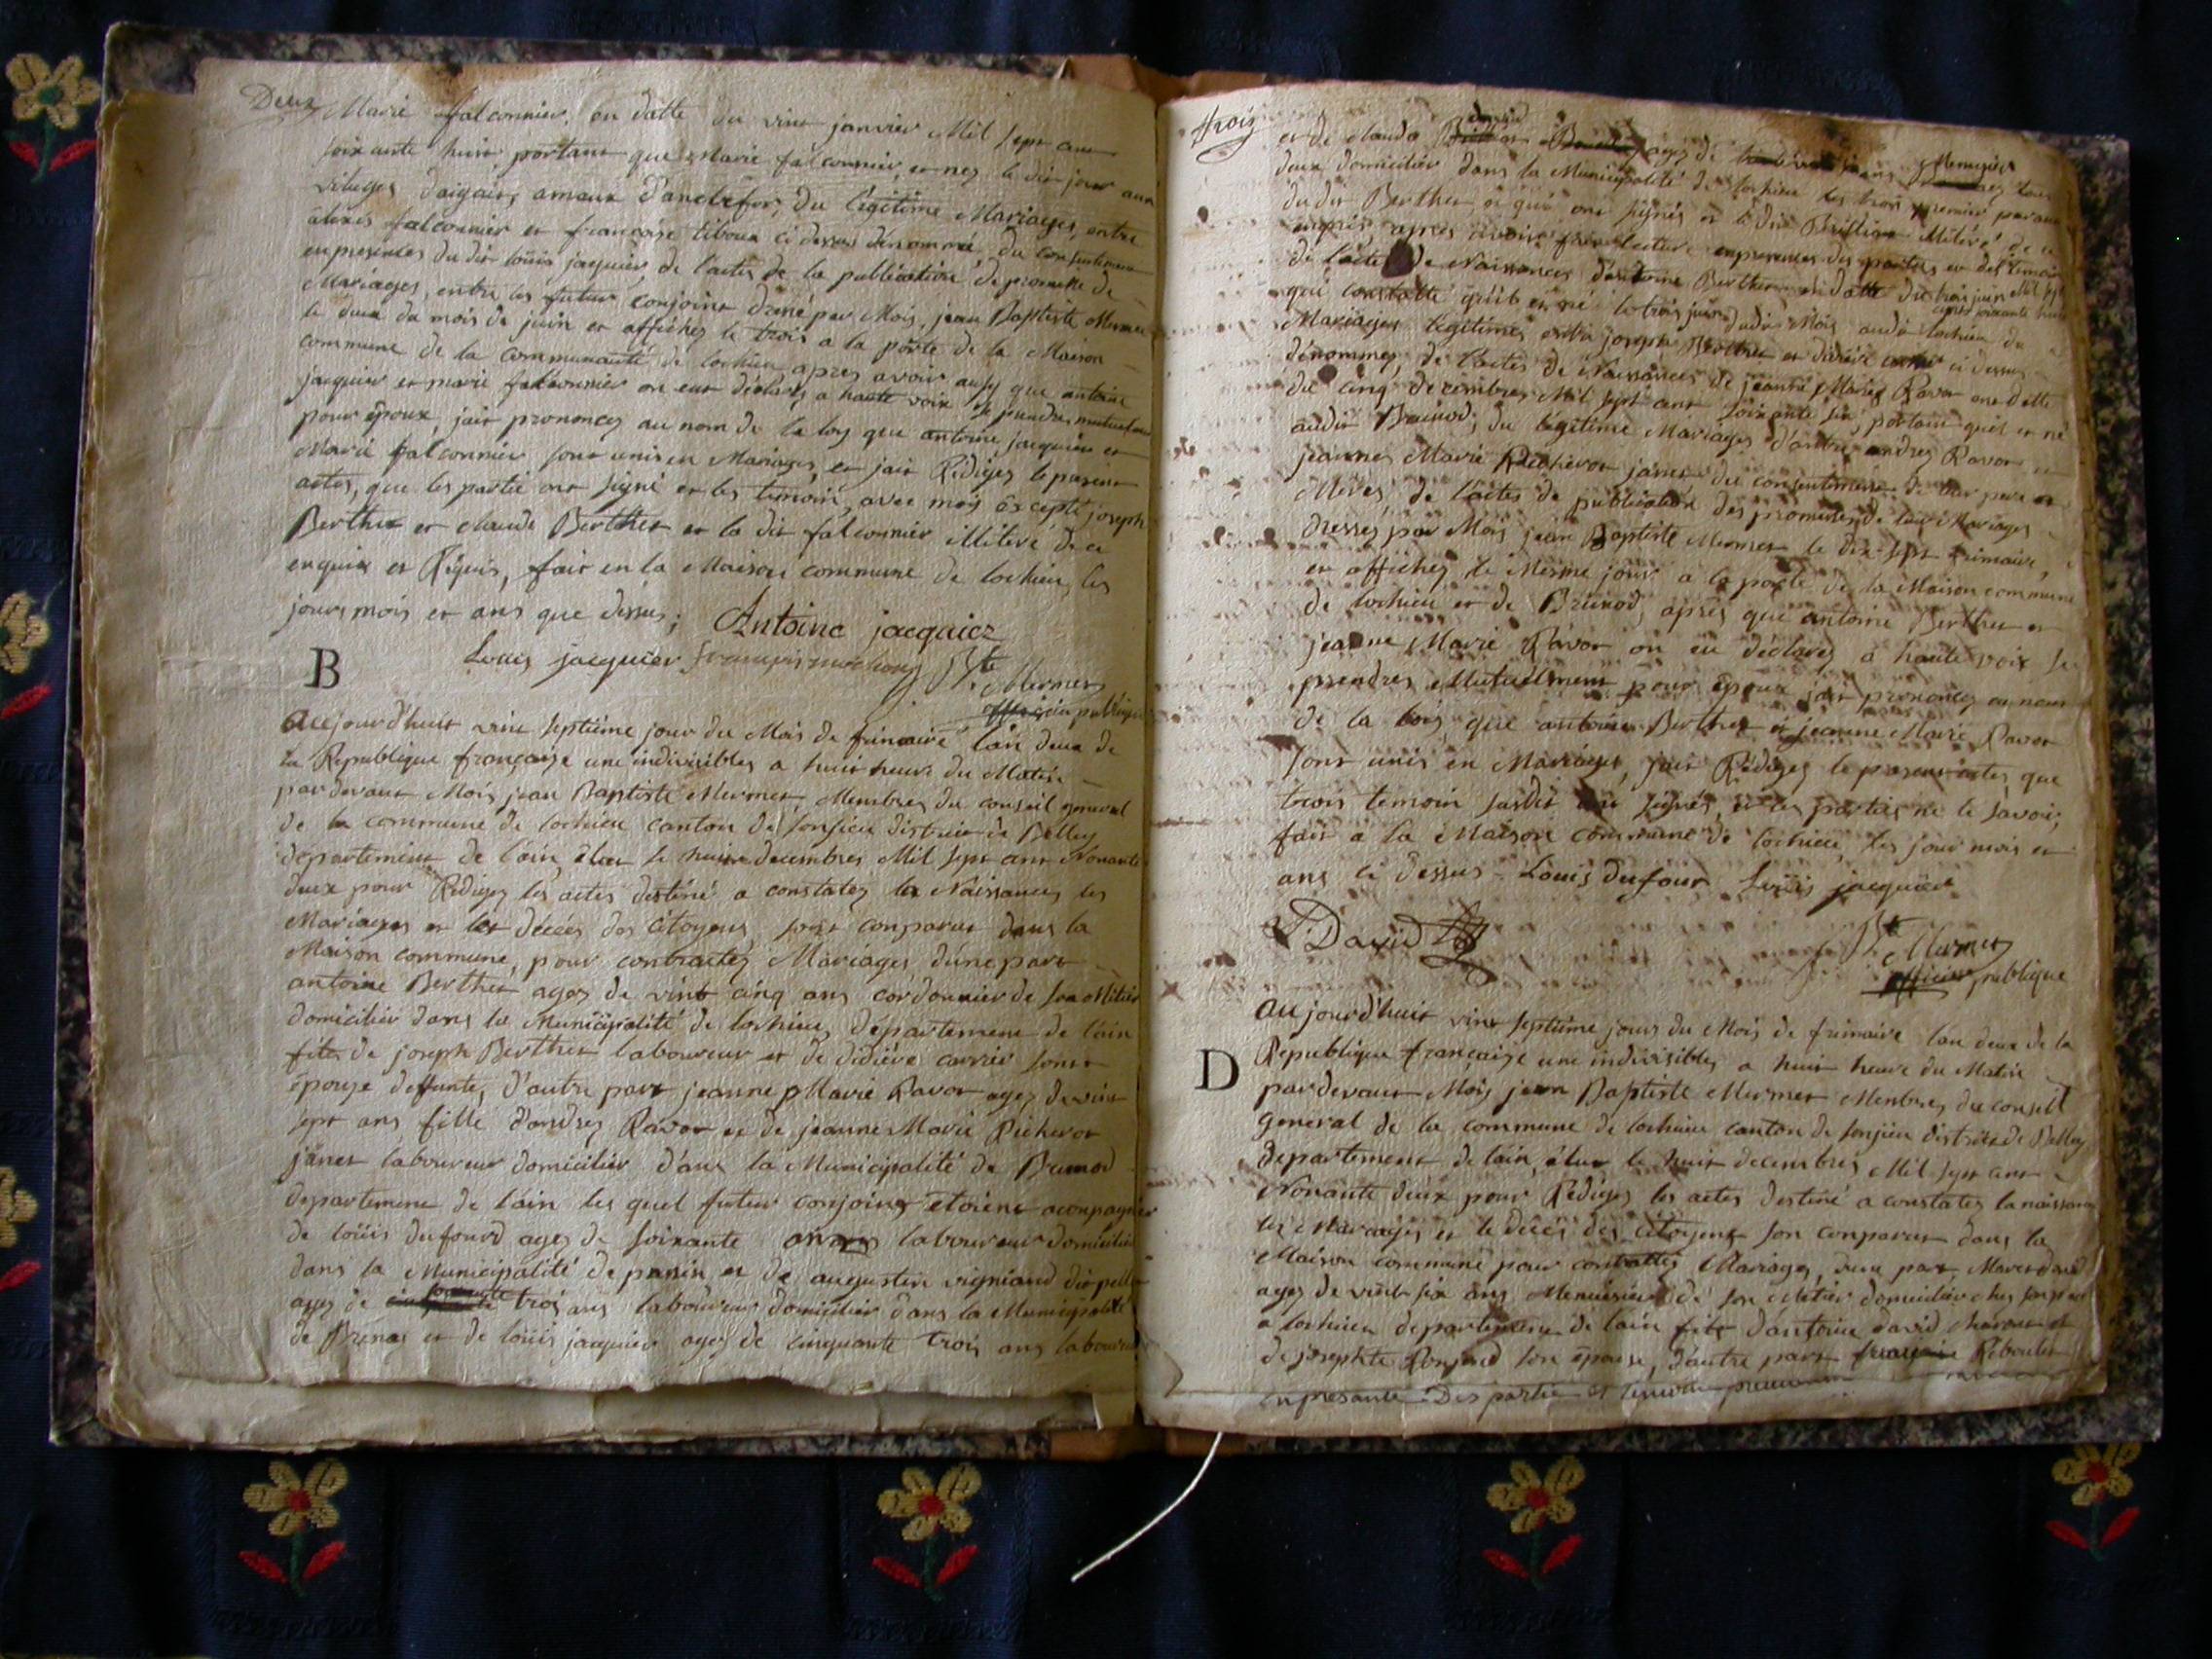 Deux
Marie falconnier, en datte du vint janvier Mil sept cent
soixante huit, portant que Marie falconnier, et nez le dit jour aux
vilages daigair, amaux d'anclefor, du légitime Mariages, entre
alexis falconnier et françoise tiboux ci dessus dénommé, du consentement
en presences du dit louis jaquier, de l'actes de la publication de promesse de
Mariages, entre les futur conjoint dréné par Mois, jean Baptiste Mermet
le deux du mois de juin et affichez le trois a la porte de la Maison
commune de la communauté de lochieu apres avoir ausy que antoine
jacquier et marie falconnier on eut déclarez a haute voix se prendre mutuelment
pour époux, jait prononcez au nom de la loy que antoine jacquier et
Marie falconnier sont unis en Mariages, et jait Rédigez le present
actes, que les partie ont signé et les temoin, avec mois éxcepté joseph
Berthet et claude Berthet et la dit falconnier illiteré de ce
enquix et Requis, fait en la Maison commune de lochieu les
jours mois et ans que dessus;
Antoine jacquier
Louis jacquier
Bte Mermet
officier publique
B
aujourd'huit vint septiéme jour du Mois de frimaire l'an deux de
la Republique française une indivisibles a huit heure du Matin
pardevant Mois jean Baptiste Mermet, Membres du conseil general
de la commune de lochieu canton de sonjieu district de Belley
departement de l'ain élut le huit decembres Mil sept cent Nonante
deux pour Rédigez les actes destiné a constatez les Naissances, les
Mariages et les décés des Citoyens sont conparus dans la
Maison commune, pour contractez Mariages, d'une part
antoine Berthet agez de vint cinq ans cordonnier de son Mitier
domicilier dans la Municipalité de lochieu, departement de l'ain
fits de joseph Berthet laboureur et de didière carrier sont
épouse deffunte, d'autre part jeanne Marie Ravot agez de vint
sept ans fille d'andrez Ravot et de jeanne Marie Pichevot
janet laboureur domicilier d'ans la Municipalité de Brenod
departement de l'ain les quel futur conjoint étoient aconpagnier
de louis dufourd agez de soixante ans laboureur domicilier
dans la Municipalité de et de augustin vigniaud
agez de trois ans laboureur domicilier dans la Municipalité
de Brenas et de louis jacquier agez de cinquante trois ans laboureur
trois
et de claude david agez de Menuisier tous
deux domicilier dans la Municipalité de lochieu les trois premier parant
du dit Berthet et qui ont signés et le dit illiteré de ce
enquis apres avoir fait lecture enpresences des parties et des temoin
de l'actes de Naissances d'antoine Berthet en datte du trois juin Mil sept
cent soixante huit
qui constatte qu'il et né le trois juin dudit Mois audit lochieu du
Mariages légitimes entre joseph Berthet et didière carrier ci dessus
dénommez, de l'actes de Naissances de jeanne Marie Ravot en datte
du cinq decembres Mil sept cent soixante six, portant quel et né
audit Brenod, du légitime Mariages d'entre andrez Ravot et
jeanne Marie Pichevot janet du consentement de leur pere et
Meres, de l'actes de publication des promesses de leur Mariages
dressez par Mois jean Baptiste Mermet le dix sept frimaire,
et affichez le Mesme jour a la porte de la Maison commune
de lochieu et de Brenod, apres que antoine Berthet et
jeanne Marie Ravot on eu déclarez a haute voix se
prendres Mutuelment pour époux jait prononcez au nom
de la lois, que antoine Berthet et jeanne Marie Ravot
sont unis en Mariages, jait Rédigez le present actes, que
trois temoin susdit ont signés, et les parties ne le savoir,
fait a la Maison commune de lochieu, les jour mois et
ans ci dessus
Louis dufour
Louis jacquier
David
Bte Mermet
officier publique
D
aujourd'huit vint septiéme jours du Mois de frimaire l'an deux de la
Republique française une indivisibles, a huit heure du Matin
pardevant Mois jean Baptiste Mermet Membres du conseil
general de la commune de lochieu canton de sonjieu district de Belley
departement de l'ain, élut le huit decembres Mil sept cent
Nonante deux pour Rédigez les actes destiné a constatez la naissances
les Mariages et le décés des citoyens son conparus dans la
Maison commune pour contractez Mariages, d'une part david
agez de vint six ans Menuisier de son Metier domicilier chez son pere
a lochieu departement de l'ain fits d'antoine david et
de josephte son épouse, d'autre part Reboulet
en presante Des partie et temoin